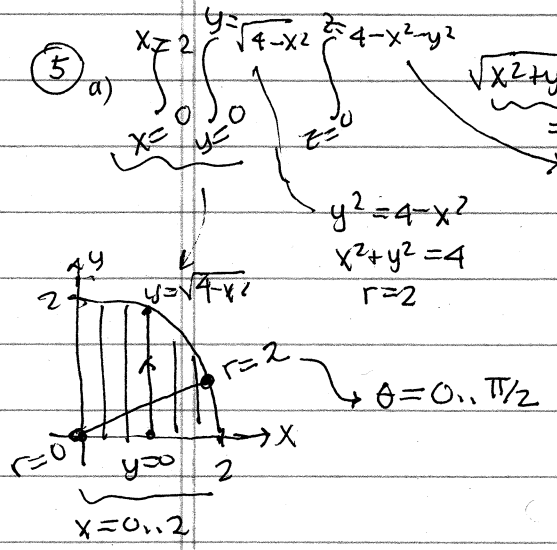 ⑤ a) ∫_{x=0}^{x=2} ∫_{y=0}^{y=√(4-x²)} ∫_{z=0}^{z=4-x²-y²}
√(x²+y
=
y² = 4-x²
x²+y² = 4
r=2
y
2
y=√(4-x²)
r=2
θ = 0..π/2
r=0
y=0
2
x
x=0..2